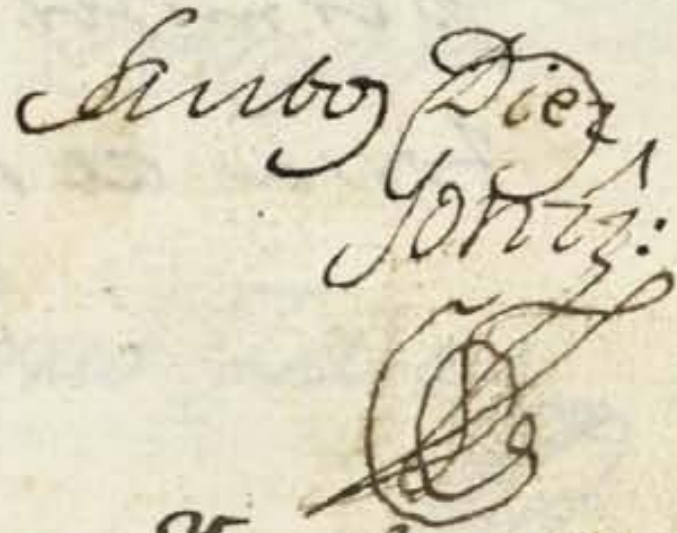 Santos Diez
Gonzz: